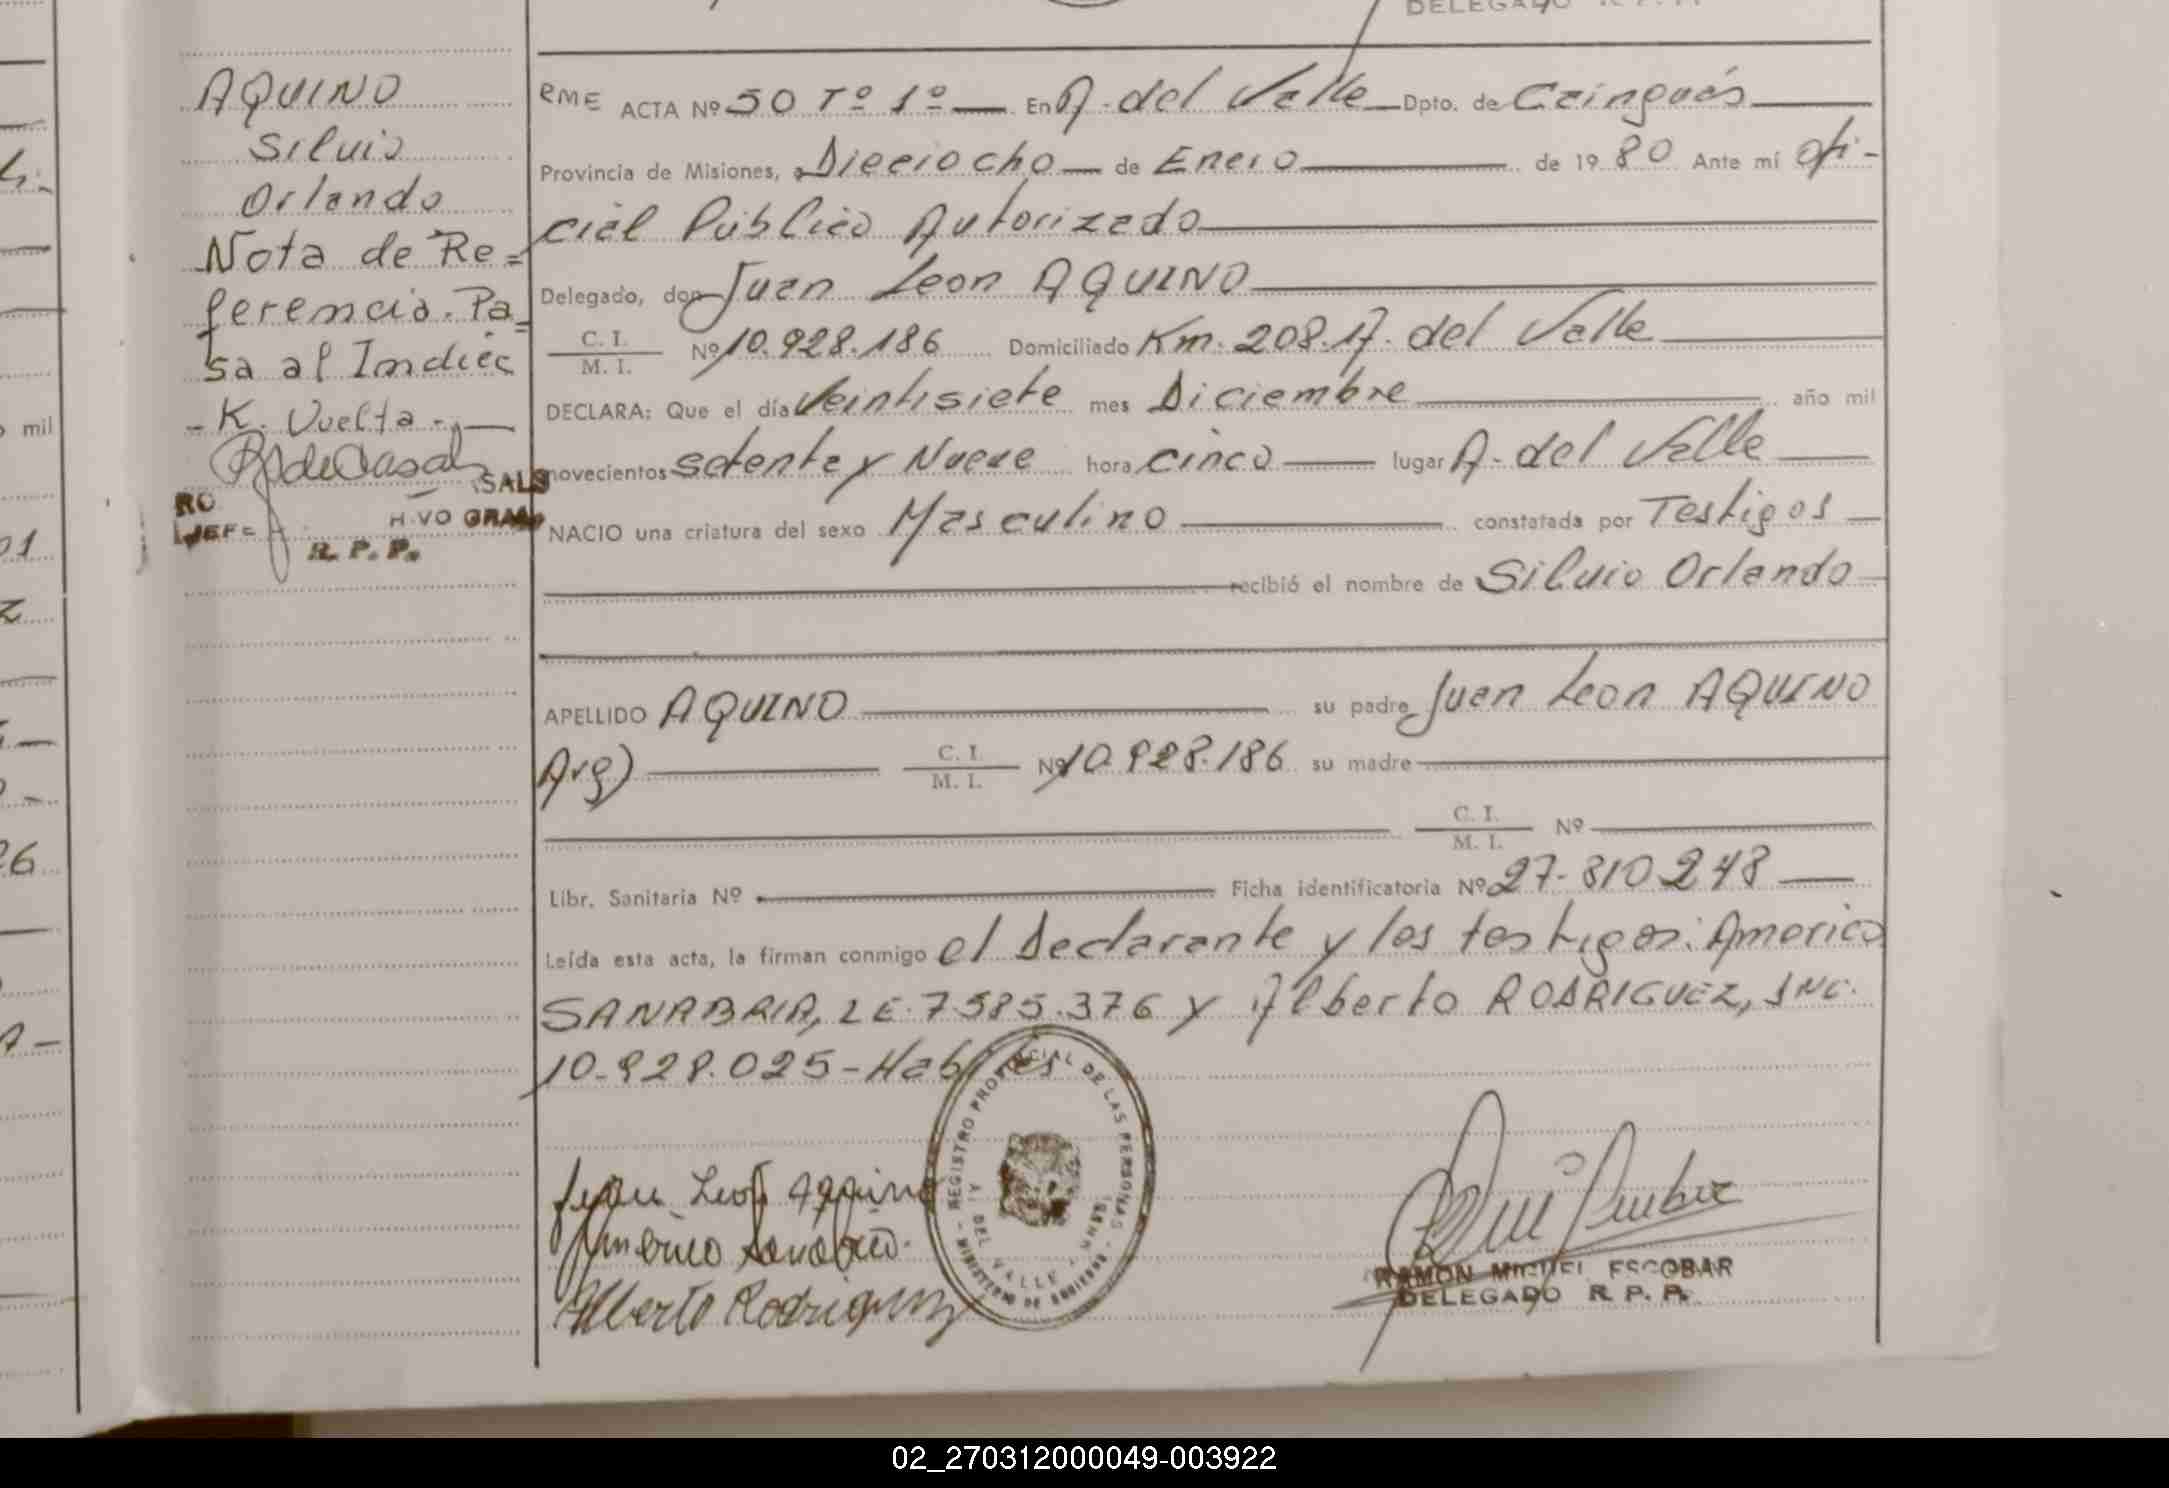 DELEGADO R. P. P.
AQUINO
Silvio
Orlando
Nota de Re=
ferencia. Pa=
sa al Indice
- K. Vuelta -
RO SALS
JEFE H.VO GRAL
R. P. P.
mil
01
26
RME ACTA Nº 50 Tº 1º En A. del Valle Dpto. de Cainguás
Provincia de Misiones, a Dieciocho de Enero de 1980 Ante mí Ofi-
cial Público Autorizado
Delegado, don Juan Leon AQUINO
C. I.
M. I. Nº 10.928.186 Domiciliado Km. 208. A. del Valle
DECLARA: Que el día Veintisiete mes Diciembre año mil
novecientos setenta y Nueve hora cinco lugar A. del Valle
NACIO una criatura del sexo Masculino constatada por Testigos
recibió el nombre de Silvio Orlando
APELLIDO AQUINO su padre Juan Leon AQUINO
Arg) C. I.
M. I. Nº 10.928.186 su madre
C. I.
M. I. Nº
Libr. Sanitaria Nº Ficha identificatoria Nº 27-810248
Leída esta acta, la firman conmigo el Declarante y los testigos: Americo
SANABRIA, LE. 7585.376 y Alberto RODRIGUEZ,
10.928.025 - Habiles
REGISTRO PROVINCIAL DE LAS PERSONAS
DEL VALLE
MINISTERIO DE GOBIERNO
Juan Leon Aquino
Americo Sanabria.
Alberto Rodriguez
RAMON MIGUEL ESCOBAR
DELEGADO R. P. P.
02_270312000049-003922